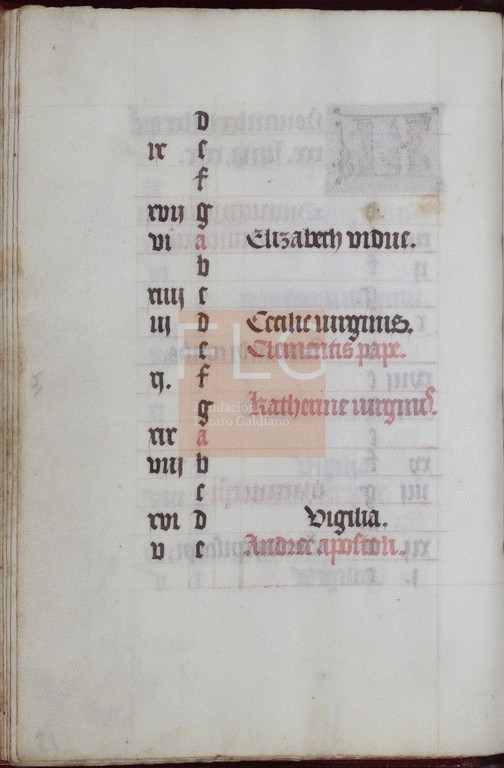 d
ix e
f
xvij g
vi a Elizabeth vidue.
b
xiiij c
iij d Cecilie uirginis.
e Clementis pape.
xj. f
g Katherine uirginis.
xix a
viij b
c
xvi d Vigilia.
v e Andree apostoli.
FLG
Fundación
Lázaro Galdiano